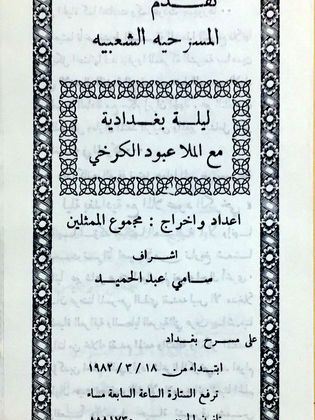 تقدم
المسرحيه الشعبيه
ليلة بغدادية
مع الملا عبود الكرخي
اعداد واخراج : مجموع الممثلين
اشراف
سامي عبد الحميد
على مسرح بغداد
ابتداء من ١٨ / ٣ / ١٩٨٢
ترفع الستارة الساعة السابعة مساء